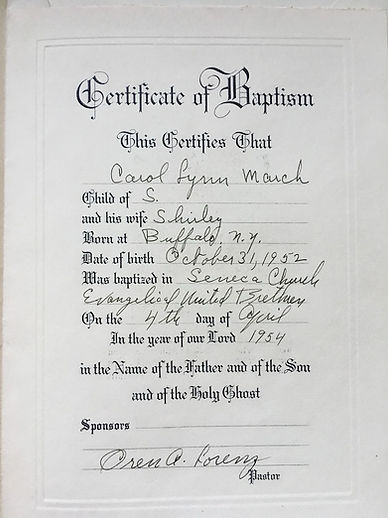 Certificate of Baptism
This Certifies That
Carol Lynn March
Child of S.
and his wife Shirley
Born at Buffalo, N.Y.
Date of birth October 31, 1952
Was baptized in Seneca Church
Evangelical United Brethren
On the 4th day of April
In the year of our Lord 1954
in the Name of the Father and of the Son
and of the Holy Ghost
Sponsors
Oren A. Lorenz
Pastor